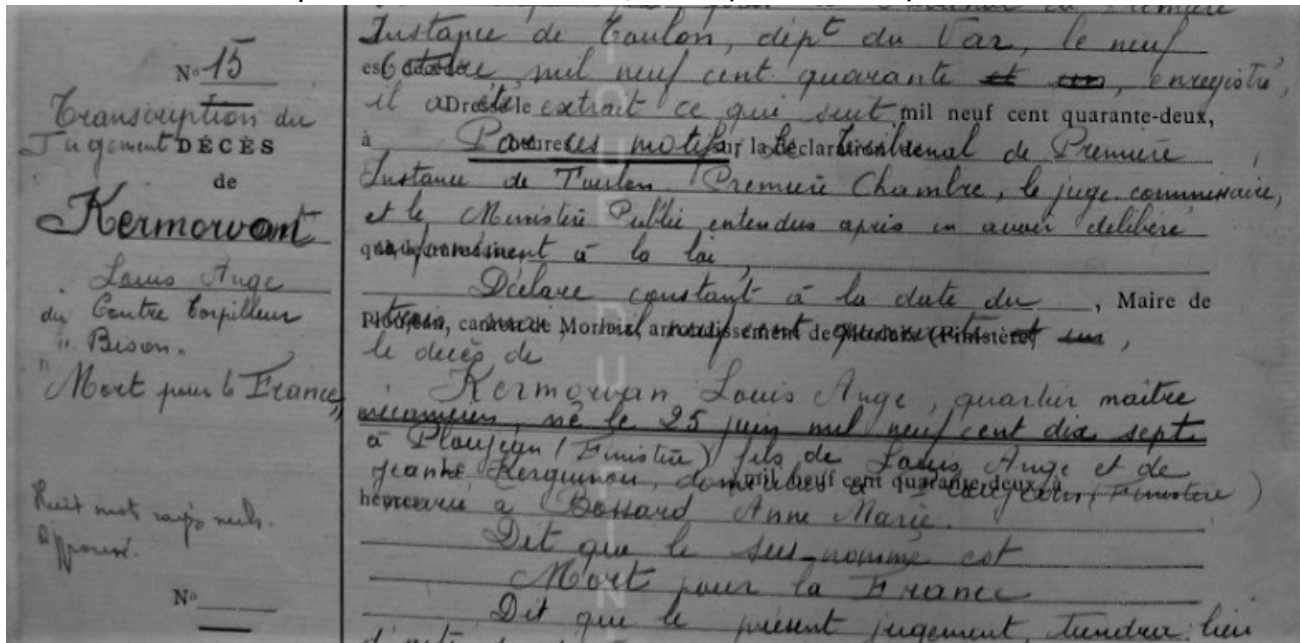 N° 15
Transcription du
Jugement DÉCÈS
de
Kermorvant
Louis Ange
du Contre torpilleur
"Bison.
"Mort pour la France"
Huit mot rayés nuls.
Approuvé.
N°
Première
Instance de Toulon, dépt du Var, le neuf
octobre mil neuf cent quarante et un, enregistré,
il a été extrait ce qui suit mil neuf cent quarante-deux,
à Par ces motifs sur la déclaration Le Tribunal de Première
Instance de Toulon Première Chambre, le juge commissaire,
et le Ministère Public entendus après en avoir délibéré
conformément à la loi
Déclare constant à la date du , Maire de
Ploujean, canton de Morlaix, arrondissement de Morlaix (Finistère) trois mai quarante et un,
le décès de
Kermorvan Louis Ange, quartier maître
mécanicien, né le 25 juin mil neuf cent dix sept
à Ploujean (Finistère) fils de Louis Ange et de
Jeanne Kerguinou, domiciliés à mil neuf cent quarante-deux, à Ploujean (Finistère)
heures a Bossard Anne Marie.
Dit que le sus-nommé est
Mort pour la France
Dit que le présent jugement, tiendra lieu